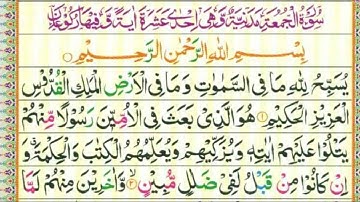 سُوْرَةُ الْجُمُعَةِ مَدَنِيَّةٌ وَّهِيَ اِحْدٰى عَشَرَةَ اٰيَةً وَّ فِيْهَا رُكُوْعَانِ
بِسْمِ اللّٰهِ الرَّحْمٰنِ الرَّحِيْمِ
يُسَبِّحُ لِلّٰهِ مَا فِى السَّمٰوٰتِ وَمَا فِى الْاَرْضِ الْمَلِكِ الْقُدُّوْسِ
الْعَزِيْزِ الْحَكِيْمِ ۝۱ هُوَ الَّذِىْ بَعَثَ فِى الْاُمِّيّٖنَ رَسُوْلًا مِّنْهُمْ
يَتْلُوْا عَلَيْهِمْ اٰيٰتِهٖ وَيُزَكِّيْهِمْ وَيُعَلِّمُهُمُ الْكِتٰبَ وَالْحِكْمَةَ ۗ وَ
اِنْ كَانُوْا مِنْ قَبْلُ لَفِىْ ضَلٰلٍ مُّبِيْنٍ ۙ۝۲ وَّاٰخَرِيْنَ مِنْهُمْ لَمَّا